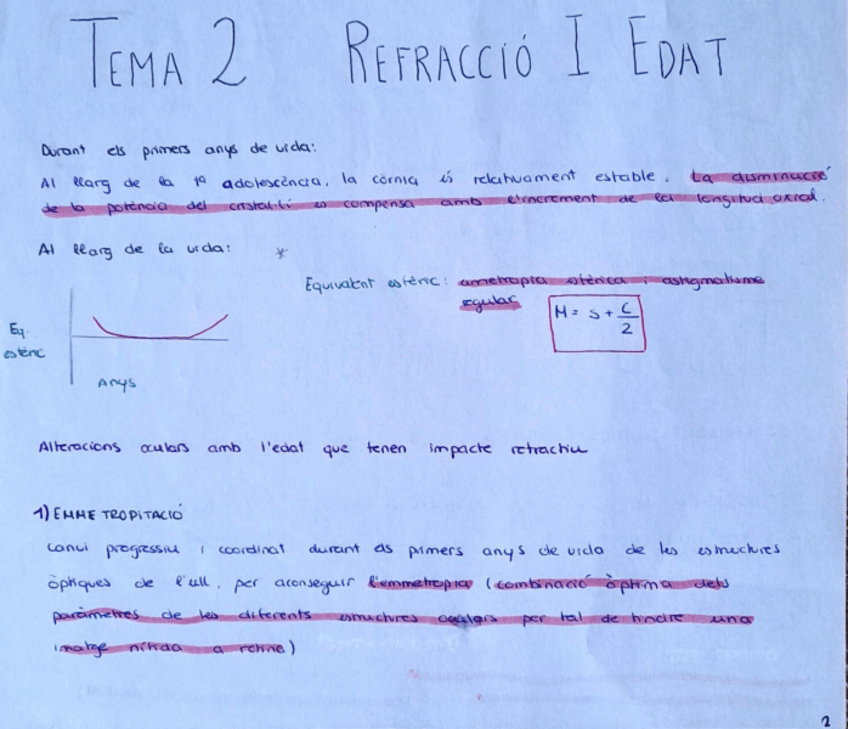 TEMA 2 REFRACCIÓ I EDAT
Durant els primers anys de vida:
Al llarg de la 1ª adolescència, la còrnia és relativament estable. La disminució
de la potència del cristal·lí es compensa amb l'increment de la longitud axial.
Al llarg de la vida: *
Equivalent esfèric: ametropia esfèrica i astigmatisme
regular
M = S + C/2
Eq.
esfèric
Anys
Alteracions oculars amb l'edat que tenen impacte refractiu
1) EMMETROPITACIÓ
Canvi progressiu i coordinat durant els primers anys de vida de les estructures
òptiques de l'ull, per aconseguir l'emmetropia (combinació òptima dels
paràmetres de les diferents estructures oculars per tal de tindre una
imatge nítida a retina)
2